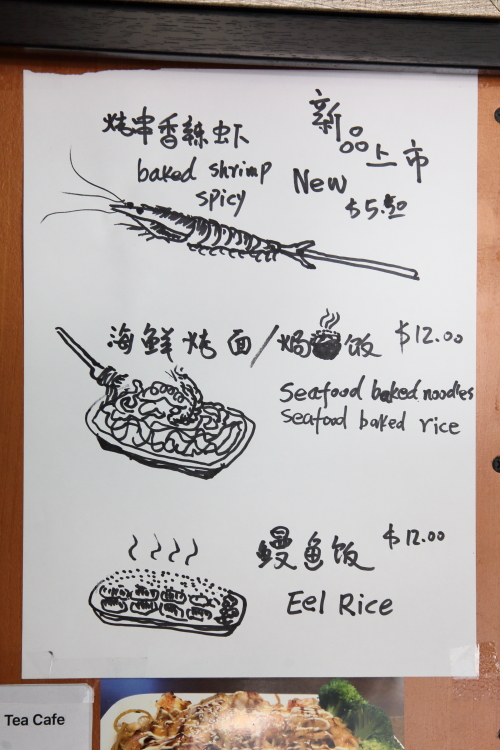 烤串香辣虾
新品上市
baked shrimp
spicy
New
$5.50
海鲜烤面/焗饭 $12.00
Seafood baked noodles
Seafood baked rice
鳗鱼饭 $12.00
Eel Rice
Tea Cafe